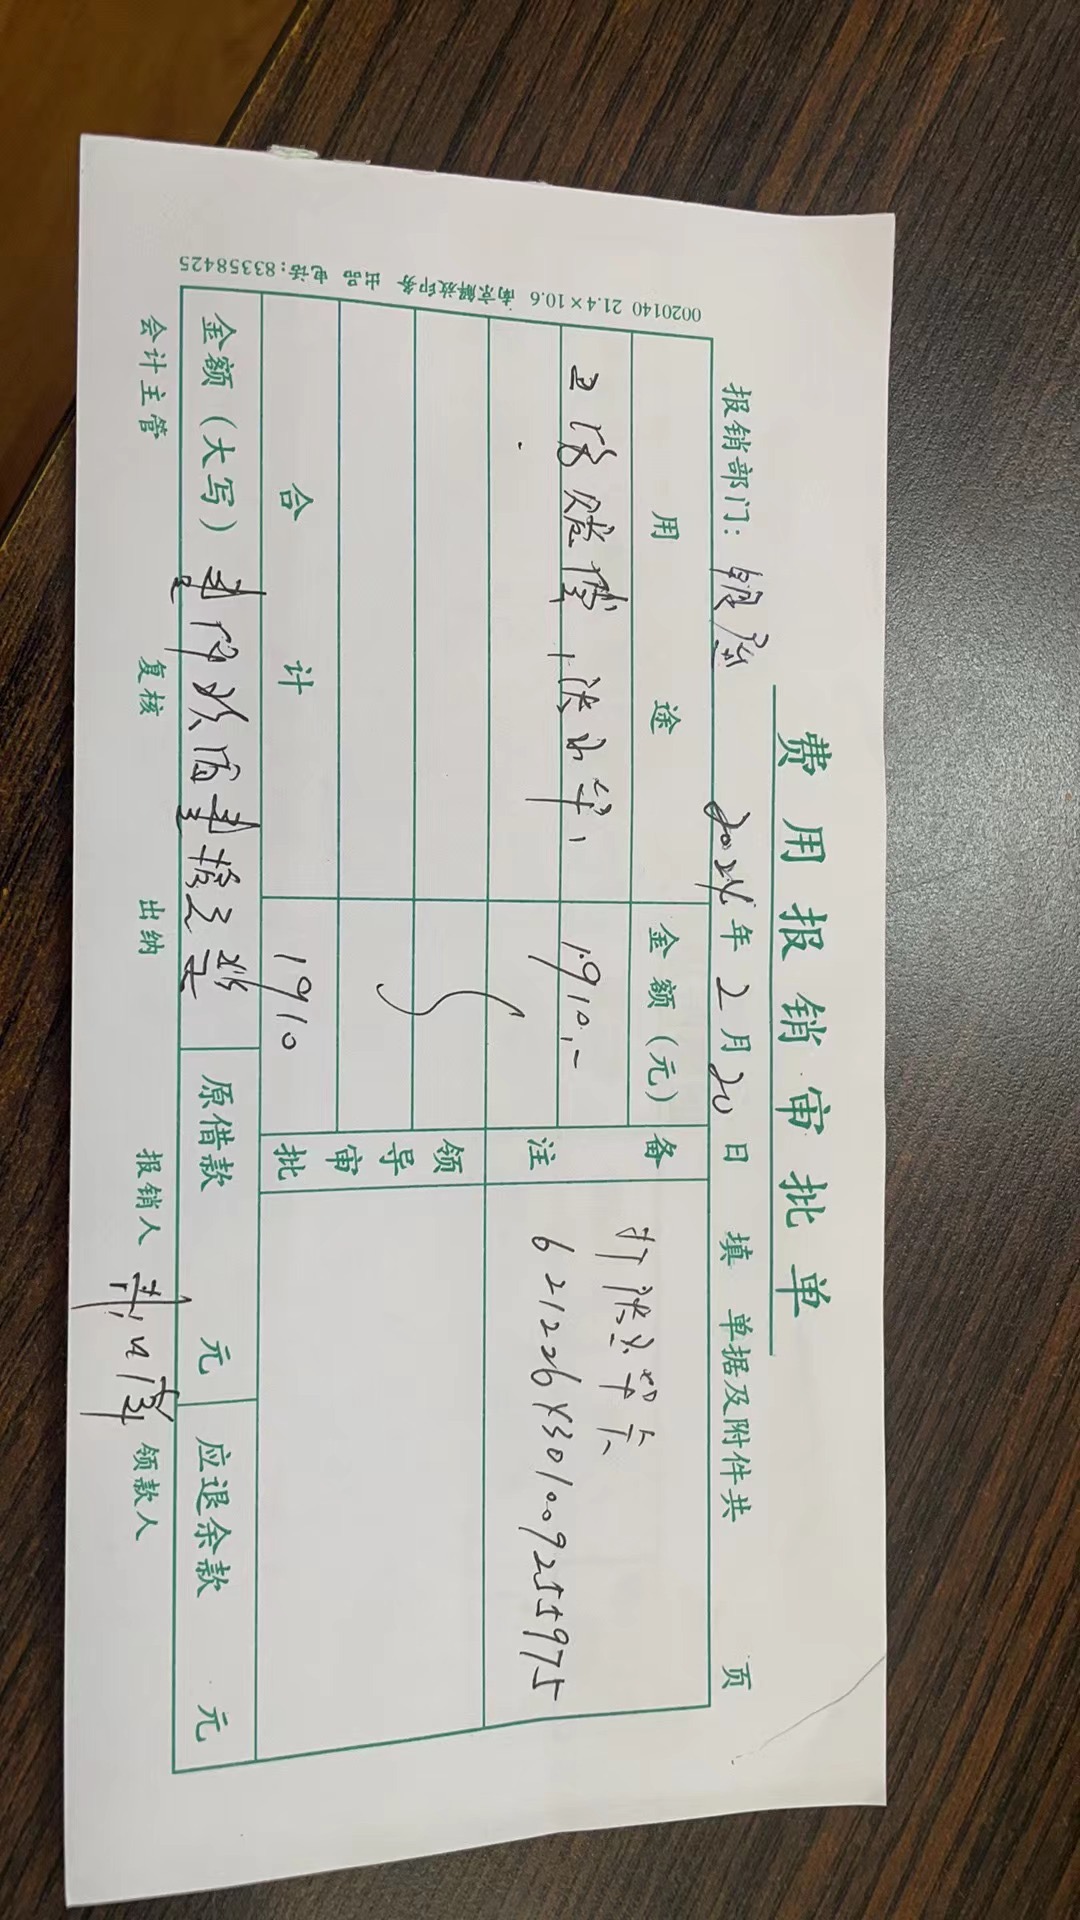 费用报销审批单
报销部门: 2024年2月20日填 单据及附件共 页
用途 金额(元) 备注
工伤赔偿 1910.-
打 卡
6212264301009255975
领导审批
合计 1910
金额(大写) 壹仟玖佰壹拾元整 原借款 元 应退余款 元
会计主管 复核 出纳 报销人 领款人
0020140 21.4×10.6 南京解放印务 出品 电话:83358425